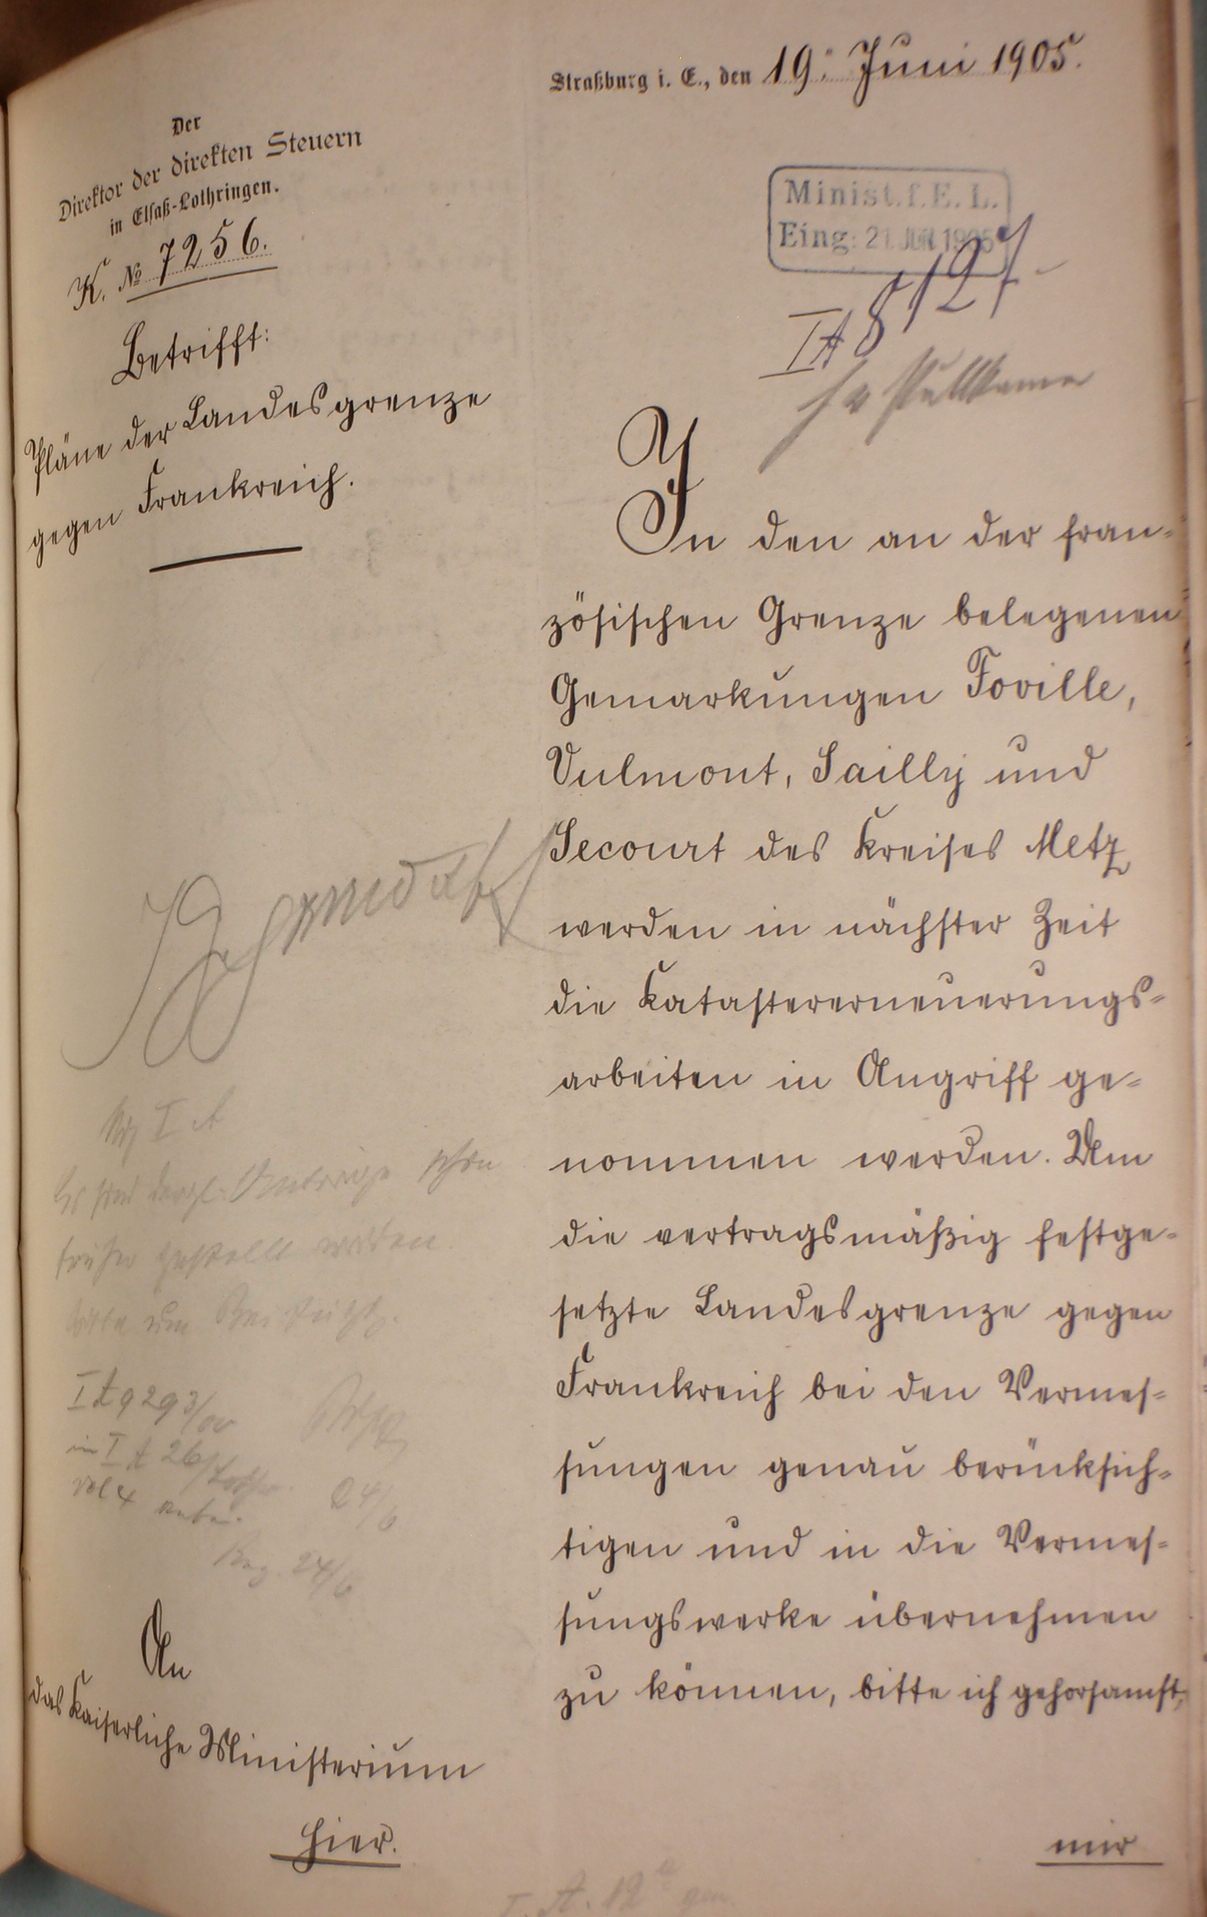 Straßburg i. E., den 19. Juni 1905.
Der
Direktor der direkten Steuern
in Elsaß-Lothringen.
K. № 7256.
Betrifft:
Pläne der Landesgrenze
gegen Frankreich.
Minist. f. E. L.
Eing: 21. JUN. 1905
IA 8127
In den an der fran-
zösischen Grenze belegenen
Gemarkungen Foville,
Vulmont, Sailly und
Secourt des Kreises Metz
werden in nächster Zeit
die Katastererneuerungs-
arbeiten in Angriff ge-
nommen werden. Um
die vertragsmäßig festge-
setzte Landesgrenze gegen
Frankreich bei den Vermes-
sungen genau berücksich-
tigen und in die Vermes-
sungswerke übernehmen
zu können, bitte ich gehorsamst,
mir
I A
Es sind dergl. Anträge schon
früher gestellt worden.
bitte um
I A 9293/00
in I A 26
vol 4 anbei.
24/6
Reg. 24/6
An
das Kaiserliche Ministerium
hier.
I. A. 12